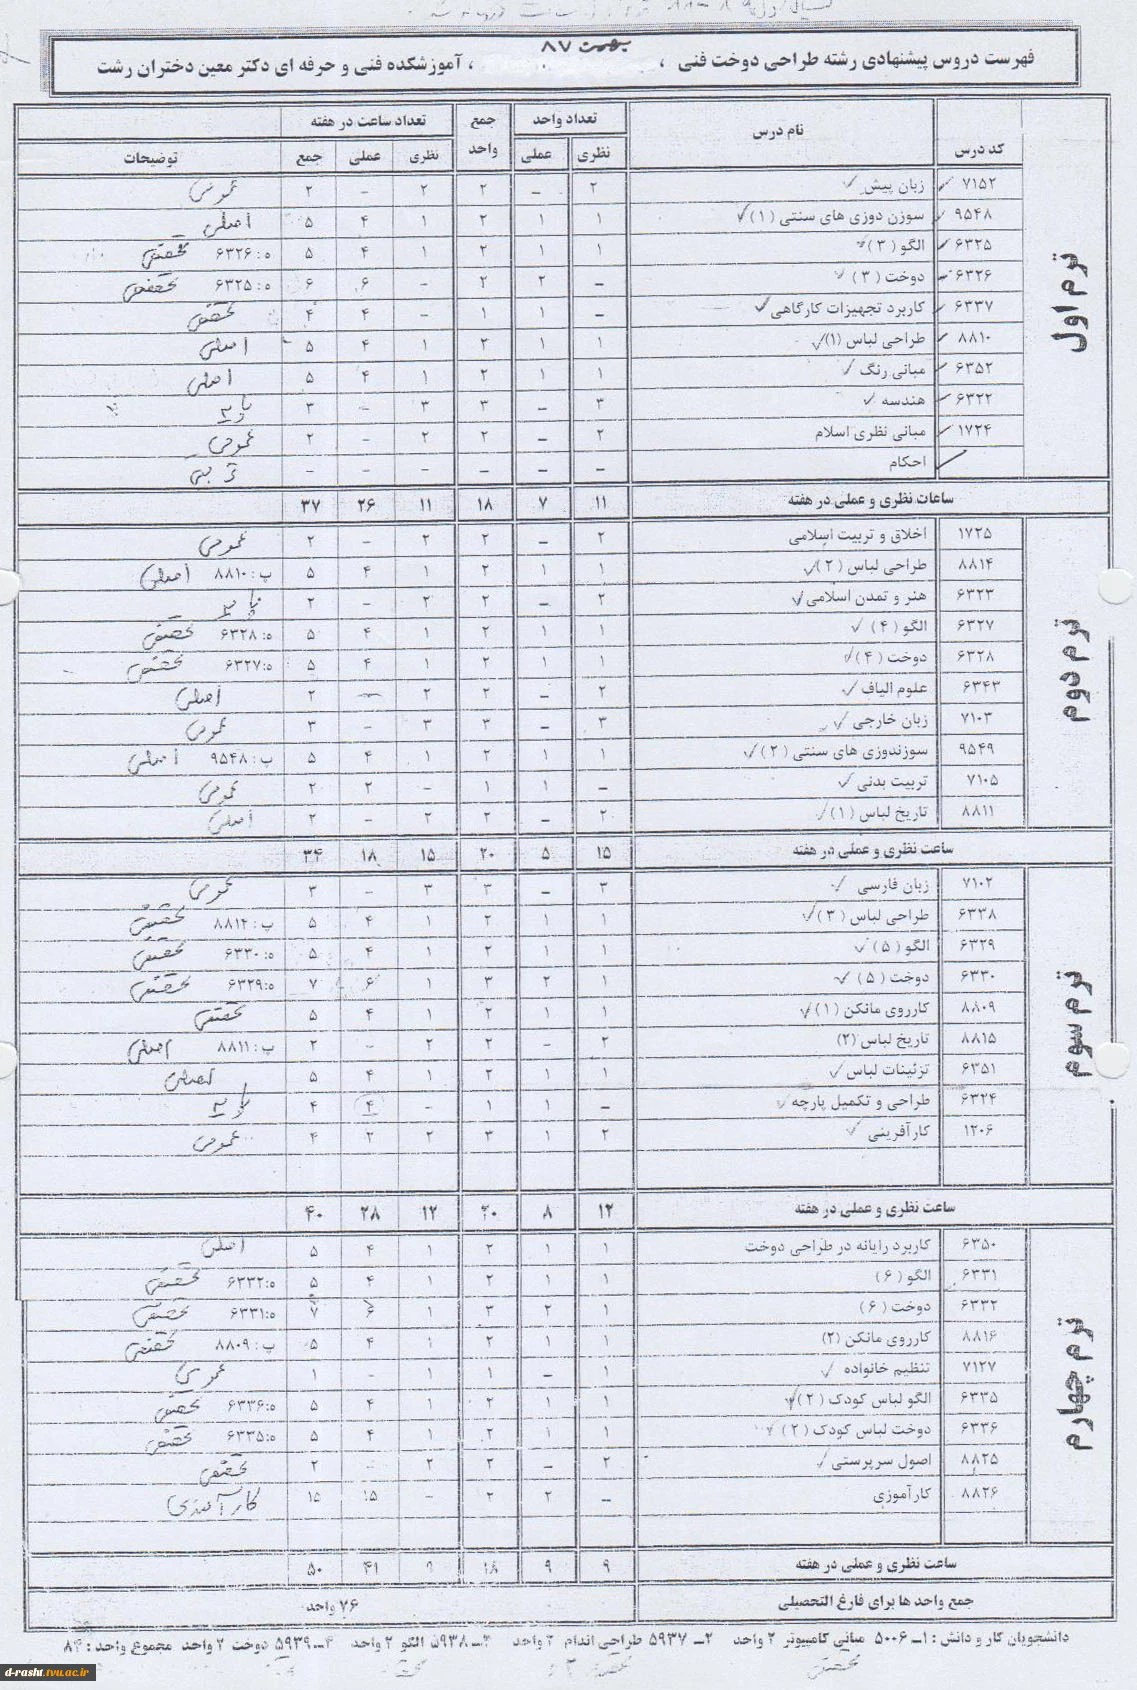 بهمن ۸۷
فهرست دروس پیشنهادی رشته طراحی دوخت فنی ، ، آموزشکده فنی و حرفه ای دکتر معین دختران رشت
کد درس نام درس تعداد واحد جمع واحد تعداد ساعت در هفته توضیحات
نظری عملی نظری عملی جمع
ترم اول
۷۱۵۲ زبان پیش ۲ – ۲ ۲ – ۲ عمومی
۹۵۴۸ سوزن دوزی های سنتی (۱) ۱ ۱ ۲ ۱ ۴ ۵ اصلی
۶۳۲۵ الگو (۳) ۱ ۱ ۲ ۱ ۴ ۵ ه: ۶۳۲۶ تخصصی
۶۳۲۶ دوخت (۳) – ۲ ۲ – ۶ ۶ ه: ۶۳۲۵ تخصصی
۶۳۳۷ کاربرد تجهیزات کارگاهی – ۱ ۱ – ۴ ۴ تخصصی
۸۸۱۰ طراحی لباس (۱) ۱ ۱ ۲ ۱ ۴ ۵ اصلی
۶۳۵۲ مبانی رنگ ۱ ۱ ۲ ۱ ۴ ۵ اصلی
۶۳۲۲ هندسه ۳ – ۳ ۳ – ۳ پایه
۱۷۲۴ مبانی نظری اسلام ۲ – ۲ ۲ – ۲ عمومی
احکام – – – – – –
ساعات نظری و عملی در هفته ۱۱ ۷ ۱۸ ۱۱ ۲۶ ۳۷
ترم دوم
۱۷۲۵ اخلاق و تربیت اسلامی ۲ – ۲ ۲ – ۲ عمومی
۸۸۱۴ طراحی لباس (۲) ۱ ۱ ۲ ۱ ۴ ۵ پ: ۸۸۱۰ اصلی
۶۳۲۳ هنر و تمدن اسلامی ۲ – ۲ ۲ – ۲ پایه
۶۳۲۷ الگو (۴) ۱ ۱ ۲ ۱ ۴ ۵ ه: ۶۳۲۸ تخصصی
۶۳۲۸ دوخت (۴) ۱ ۱ ۲ ۱ ۴ ۵ ه: ۶۳۲۷ تخصصی
۶۳۴۳ علوم الیاف ۲ – ۲ ۲ – ۲ اصلی
۷۱۰۳ زبان خارجی ۳ – ۳ ۳ – ۳ عمومی
۹۵۴۹ سوزندوزی های سنتی (۲) ۱ ۱ ۲ ۱ ۴ ۵ پ: ۹۵۴۸ اصلی
۷۱۰۵ تربیت بدنی – ۱ ۱ – ۲ ۲ عمومی
۸۸۱۱ تاریخ لباس (۱) ۲ – ۲ ۲ – ۲ اصلی
ساعت نظری و عملی در هفته ۱۵ ۵ ۲۰ ۱۵ ۱۸ ۳۴
ترم سوم
۷۱۰۲ زبان فارسی ۳ – ۳ ۳ – ۳ عمومی
۶۳۳۸ طراحی لباس (۳) ۱ ۱ ۲ ۱ ۴ ۵ پ: ۸۸۱۲ تخصصی
۶۳۲۹ الگو (۵) ۱ ۱ ۲ ۱ ۴ ۵ ه: ۶۳۳۰ تخصصی
۶۳۳۰ دوخت (۵) ۱ ۲ ۳ ۱ ۶ ۷ ه: ۶۳۲۹ تخصصی
۸۸۰۹ کارروی مانکن (۱) ۱ ۱ ۲ ۱ ۴ ۵ تخصصی
۸۸۱۵ تاریخ لباس (۲) ۲ – ۲ ۲ – ۲ پ: ۸۸۱۱ اصلی
۶۳۵۱ تزئینات لباس ۱ ۱ ۲ ۱ ۴ ۵ اصلی
۶۳۲۴ طراحی و تکمیل پارچه – ۱ ۱ – ۴ ۴ پایه
۱۲۰۶ کارآفرینی ۲ ۱ ۳ ۲ ۲ ۴ عمومی
ساعت نظری و عملی در هفته ۱۲ ۸ ۲۰ ۱۲ ۲۸ ۴۰
ترم چهارم
۶۳۵۰ کاربرد رایانه در طراحی دوخت ۱ ۱ ۲ ۱ ۴ ۵ اصلی
۶۳۳۱ الگو (۶) ۱ ۱ ۲ ۱ ۴ ۵ ه: ۶۳۳۲ تخصصی
۶۳۳۲ دوخت (۶) ۱ ۲ ۳ ۱ ۶ ۷ ه: ۶۳۳۱ تخصصی
۸۸۱۶ کارروی مانکن (۲) ۱ ۱ ۲ ۱ ۴ ۵ پ: ۸۸۰۹ تخصصی
۷۱۲۷ تنظیم خانواده ۱ – ۱ ۱ – ۱ عمومی
۶۳۳۵ الگو لباس کودک (۲) ۱ ۱ ۲ ۱ ۴ ۵ ه: ۶۳۳۶ تخصصی
۶۳۳۶ دوخت لباس کودک (۲) ۱ ۱ ۲ ۱ ۴ ۵ ه: ۶۳۳۵ تخصصی
۸۸۲۵ اصول سرپرستی ۲ – ۲ ۲ – ۲ تخصصی
۸۸۲۶ کارآموزی – ۲ ۲ – ۱۵ ۱۵ کارآموزی
ساعت نظری و عملی در هفته ۹ ۹ ۱۸ ۹ ۴۱ ۵۰
جمع واحد ها برای فارغ التحصیلی ۷۶ واحد
دانشجویان کار و دانش : ۱ـ ۵۰۰۶ مبانی کامپیوتر ۲ واحد ۲ـ ۵۹۳۷ طراحی اندام ۲ واحد ۳ـ ۵۹۳۸ الگو ۲ واحد ۴ـ ۵۹۳۹ دوخت ۲ واحد مجموع واحد : ۸۴
d-rasht.tvu.ac.ir